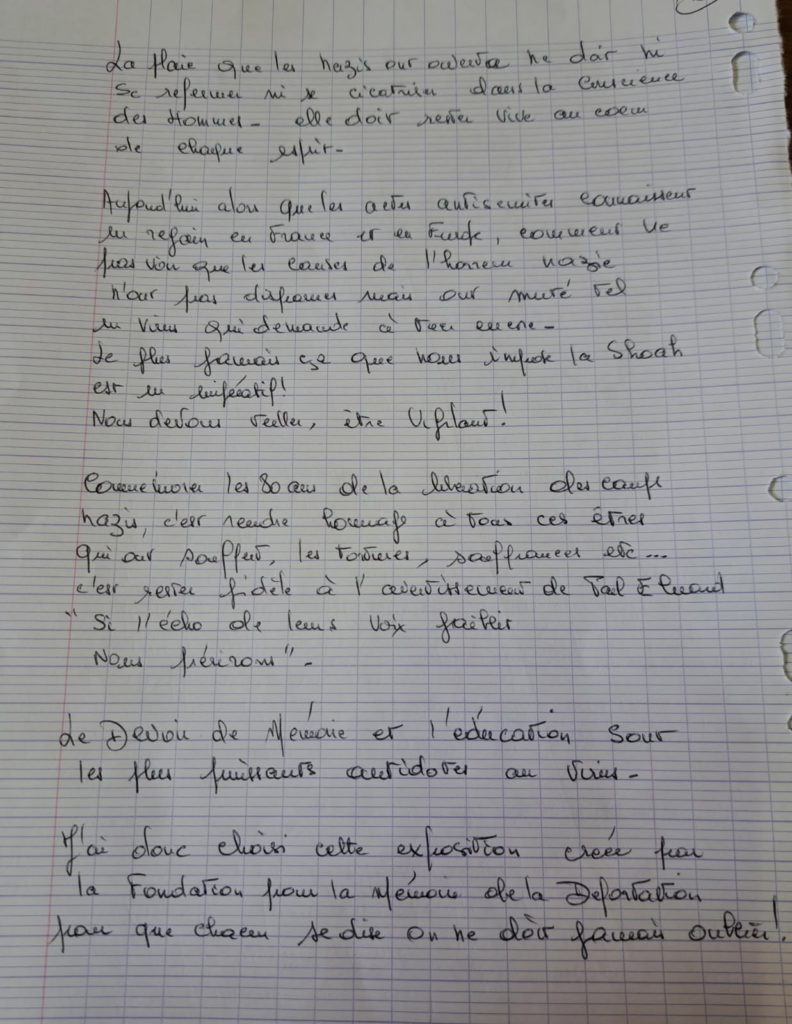 La plaie que les nazis ont ouverte ne doit ni
se refermer ni se cicatriser dans la Conscience
des Hommes - elle doit rester vive au coeur
de chaque esprit -
Aujourd'hui alors que les actes antisémites connaissent
un regain en France et en Europe, comment ne
pas voir que les causes de l'horreur nazie
n'ont pas disparues mais ont muté tel
un virus qui demande à tuer encore -
Le plus jamais ça que nous impose la Shoah
est un impératif!
Nous devons veiller, être Vigilant!
Commémorer les 80 ans de la libération des camps
nazis, c'est rendre hommage à tous ces êtres
qui ont souffert, les tortures, souffrances etc...
c'est rester fidèle à l'avertissement de Paul Eluard
"Si l'écho de leurs voix faiblit
Nous périrons" -
Le Devoir de Mémoire et l'éducation sont
les plus puissants antidotes au virus -
J'ai donc choisi cette exposition créée par
la Fondation pour la Mémoire de la Déportation
pour que chacun se dise on ne doit jamais oublier!